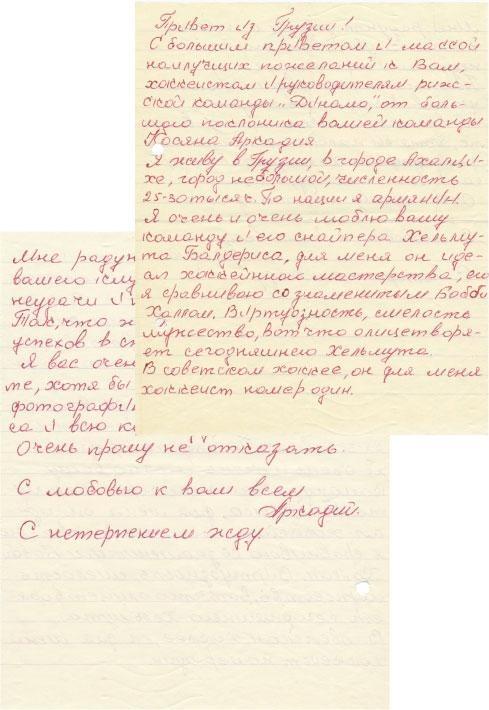 Привет из Грузии!
С большим приветом и массой
наилучших пожеланий к Вам,
хоккеистам и руководителям риж-
ской команды „Динамо”, от боль-
шого поклоника вашей команды
Косяна Аркадия
Я живу в Грузии, в городе Ахалци-
хе, город небольшой, численность
25-30 тысяч. По нации я армянин.
Я очень и очень люблю вашу
команду и его снайпера Хельму-
та Балдериса, для меня он иде-
ал хоккейного мастерства, его
я сравниваю со знаменитым Бобби
Халлом. Виртуозность, смелость
мужество, вот что олицетворя-
ет сегодняшнего Хельмута.
В советском хоккее, он для меня
хоккеист номер один.
Мне радую
вашего
неудачи и
Так, что ж
успехов в сп
Я вас очен
те, хотя бы
фотографи
са и всю ко
Очень прошу не отказать.
С любовью к вам всем
Аркадий.
С нетерпением жду